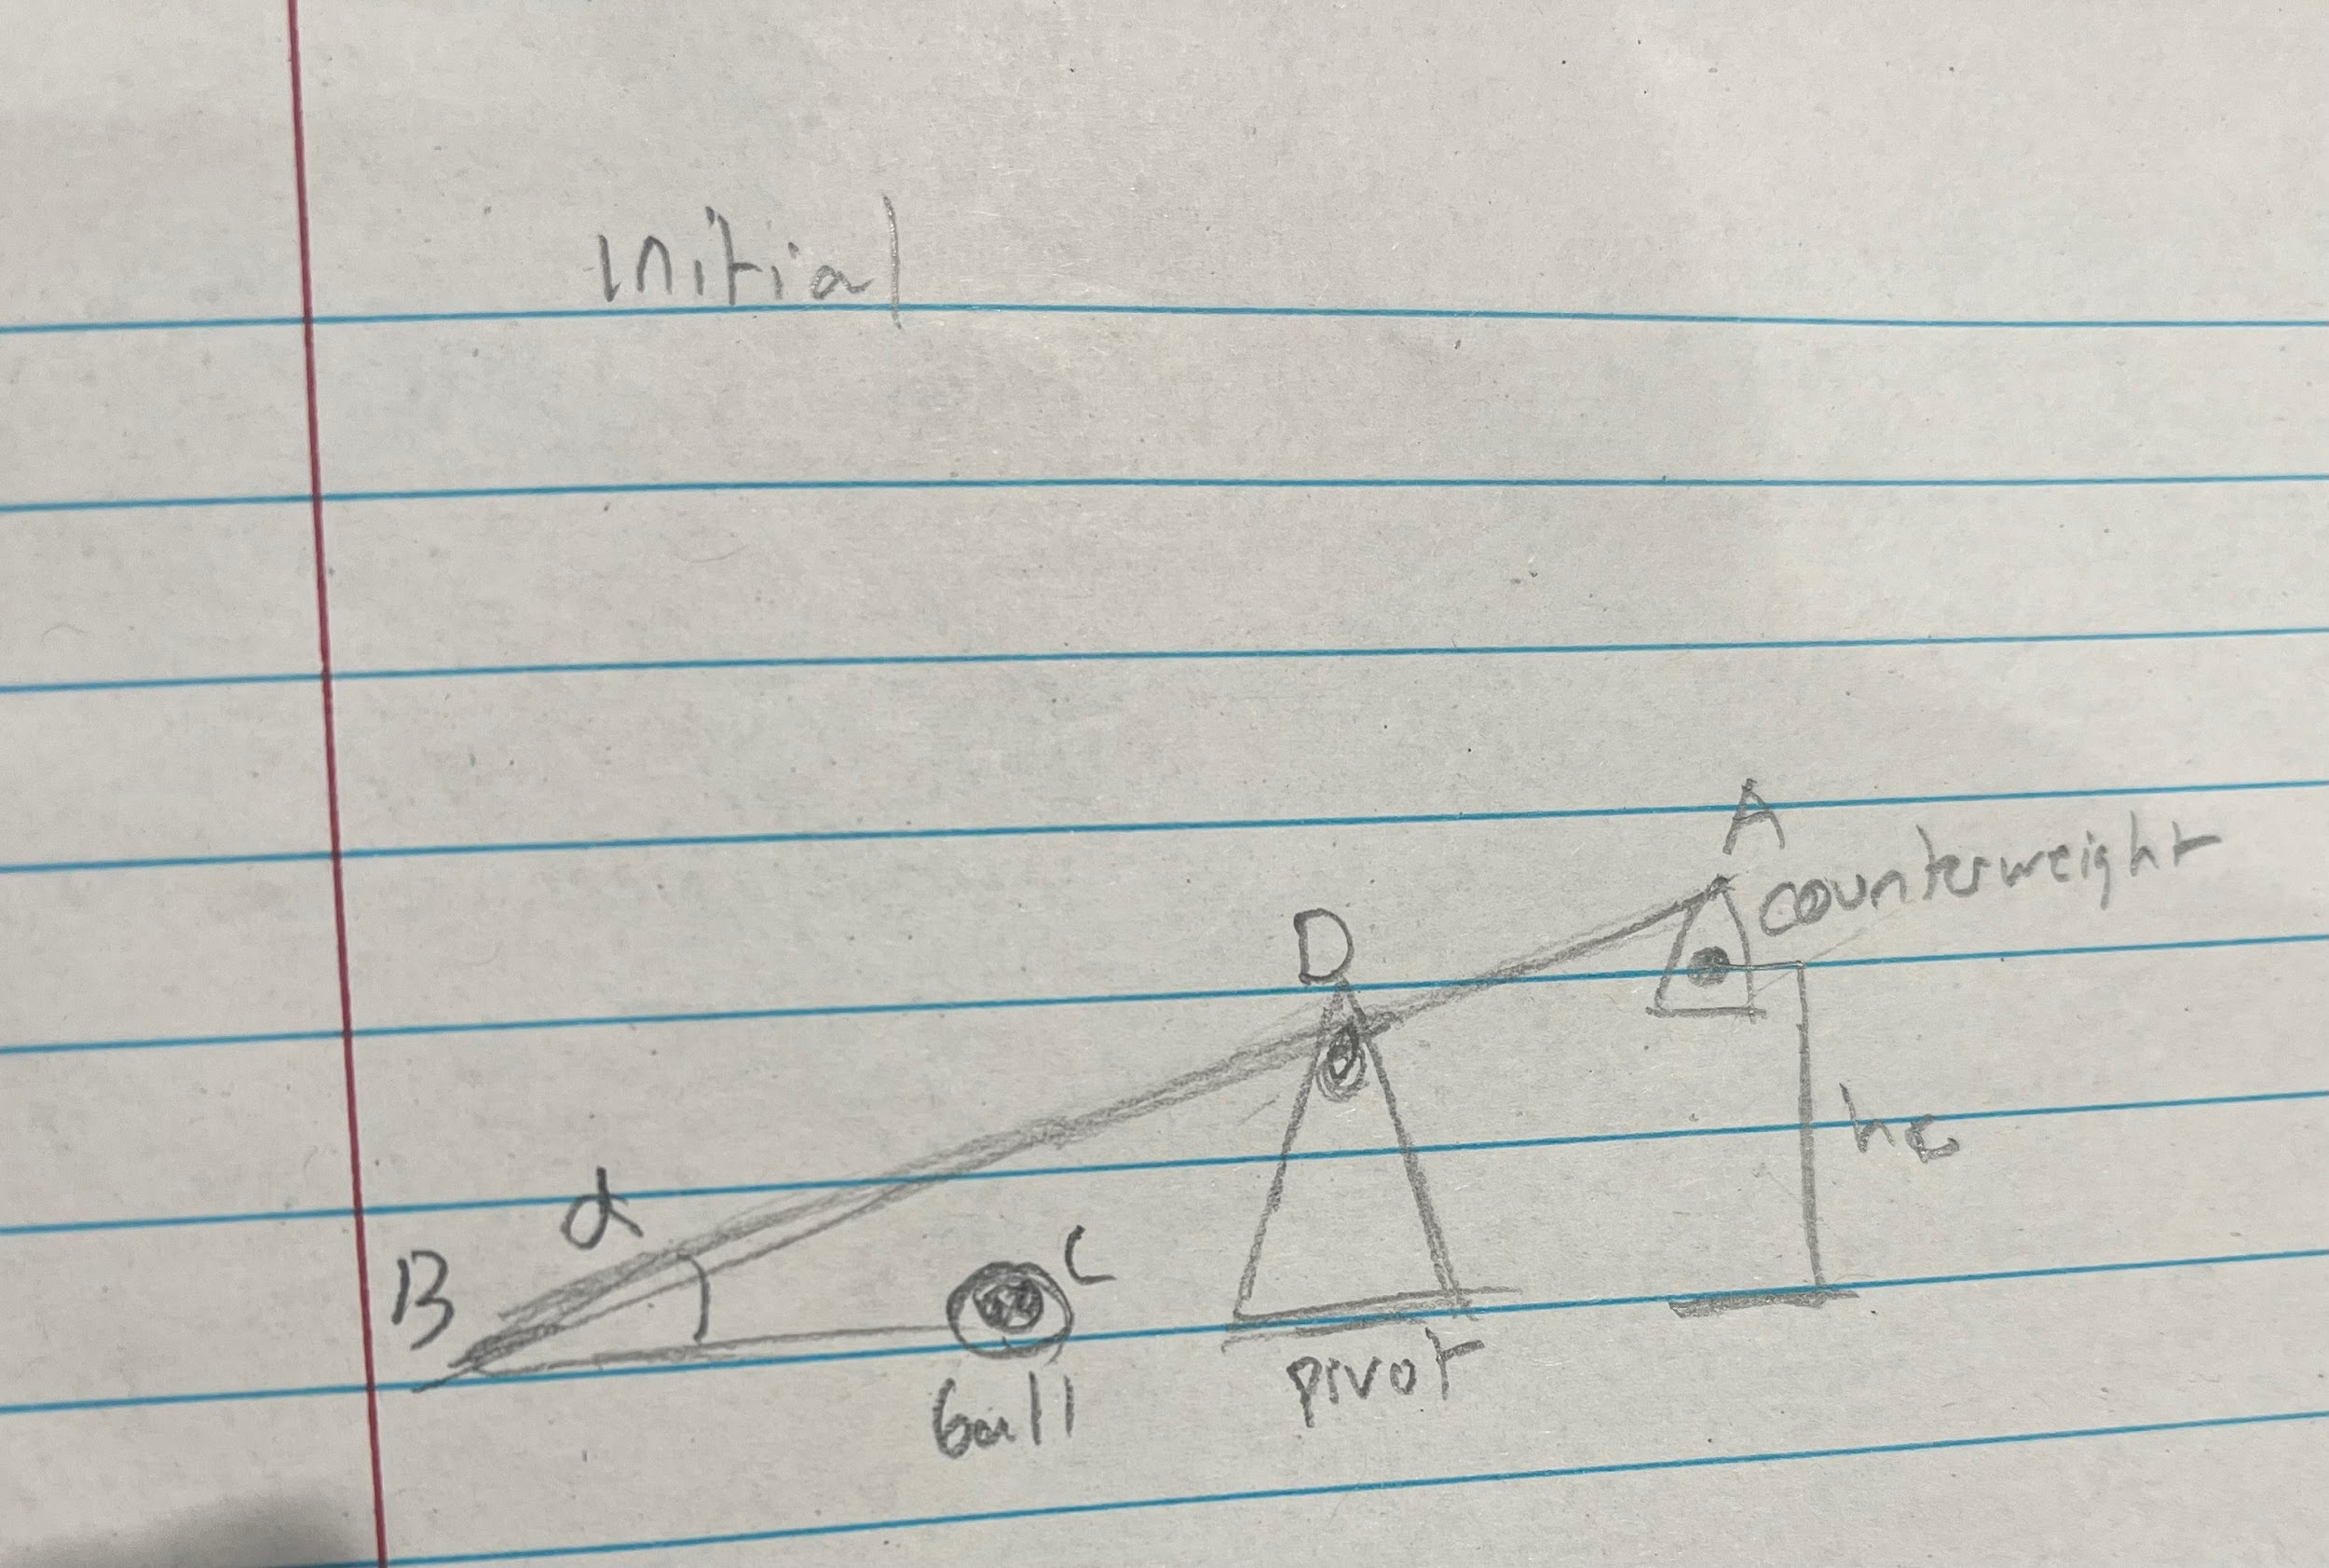 Initial
A
counterweight
D
hc
α
B
C
ball
pivot